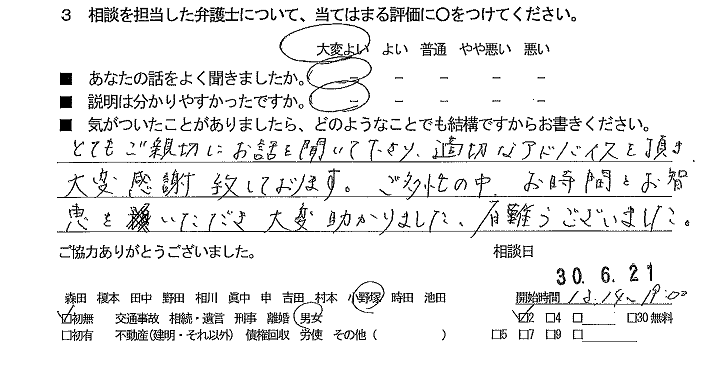 3 相談を担当した弁護士について、当てはまる評価に〇をつけてください。
大変よい よい 普通 やや悪い 悪い
■ あなたの話をよく聞きましたか。 － － － － －
■ 説明は分かりやすかったですか。 － － － － －
■ 気がついたことがありましたら、どのようなことでも結構ですからお書きください。
とてもご親切にお話を聞いて下さり、適切なアドバイスを頂き
大変感謝致しております。ご多忙の中、お時間とお智
恵をいただき大変助かりました、有難うございました。
ご協力ありがとうございました。 相談日
30.6.21
森田 榎本 田中 野田 相川 眞中 申 吉田 村本 小野塚 時田 池田 開始時間 19:00
☑初無 交通事故 相続・遺言 刑事 離婚 男女 ☑2 □4 □ □30無料
□初有 不動産(建明・それ以外) 債権回収 労使 その他 ( ) □5 □7 □9 □